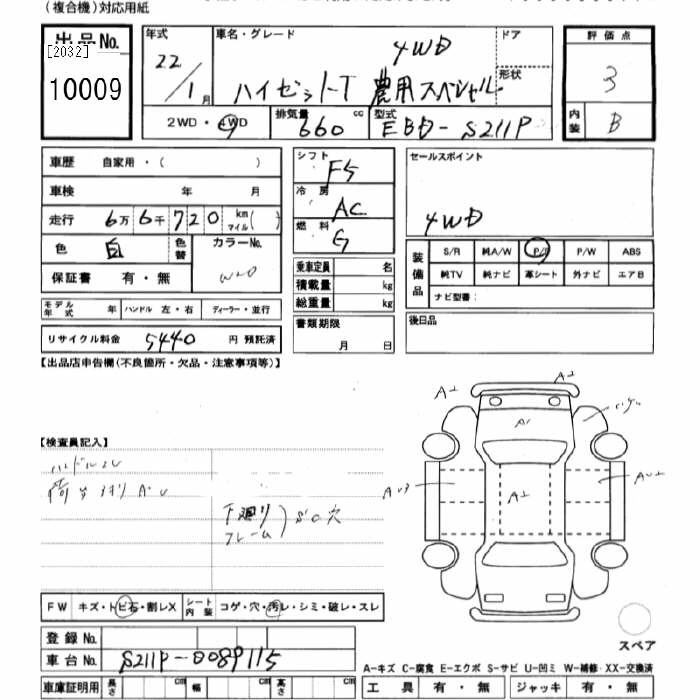 (複合機)対応用紙
出品No.
[2032]
10009
年式 22/1月
車名・グレード 4WD
ハイゼットT 農用スペシャル
ドア
形状
評価点
3
内装 B
2WD・4WD
排気量 660 cc
型式 EBD-S211P
車歴 自家用・( )
車検 年 月
走行 6万6千720 km マイル( )
色 白 色替 カラーNo. W20
保証書 有・無
モデル年式 年 ハンドル 左・右 ディーラー・並行
リサイクル料金 5440 円 預託済
シフト F5
冷房 AC
燃料 G
乗車定員 名
積載量 kg
総重量 kg
書類期限
月 日
セールスポイント
4WD
装備品
S/R 純A/W P/S P/W ABS
純TV 純ナビ 革シート 外ナビ エアB
ナビ型番:
後日品
【出品店申告欄(不良箇所・欠品・注意事項等)】
【検査員記入】
ハンドルスレ
荷台 A・U
下廻り
フレーム
S・C 穴
A2
A2
A1
A2
FW キズ・トビ石・割レX シート内装 コゲ・穴・汚レ・シミ・破レ・スレ
登録No.
車台No. S211P-0089115
車庫証明用 長さ cm 幅 cm 高さ cm
スペア
A-キズ C-腐食 E-エクボ S-サビ U-凹ミ W-補修 XX-交換済
工具 有・無 ジャッキ 有・無